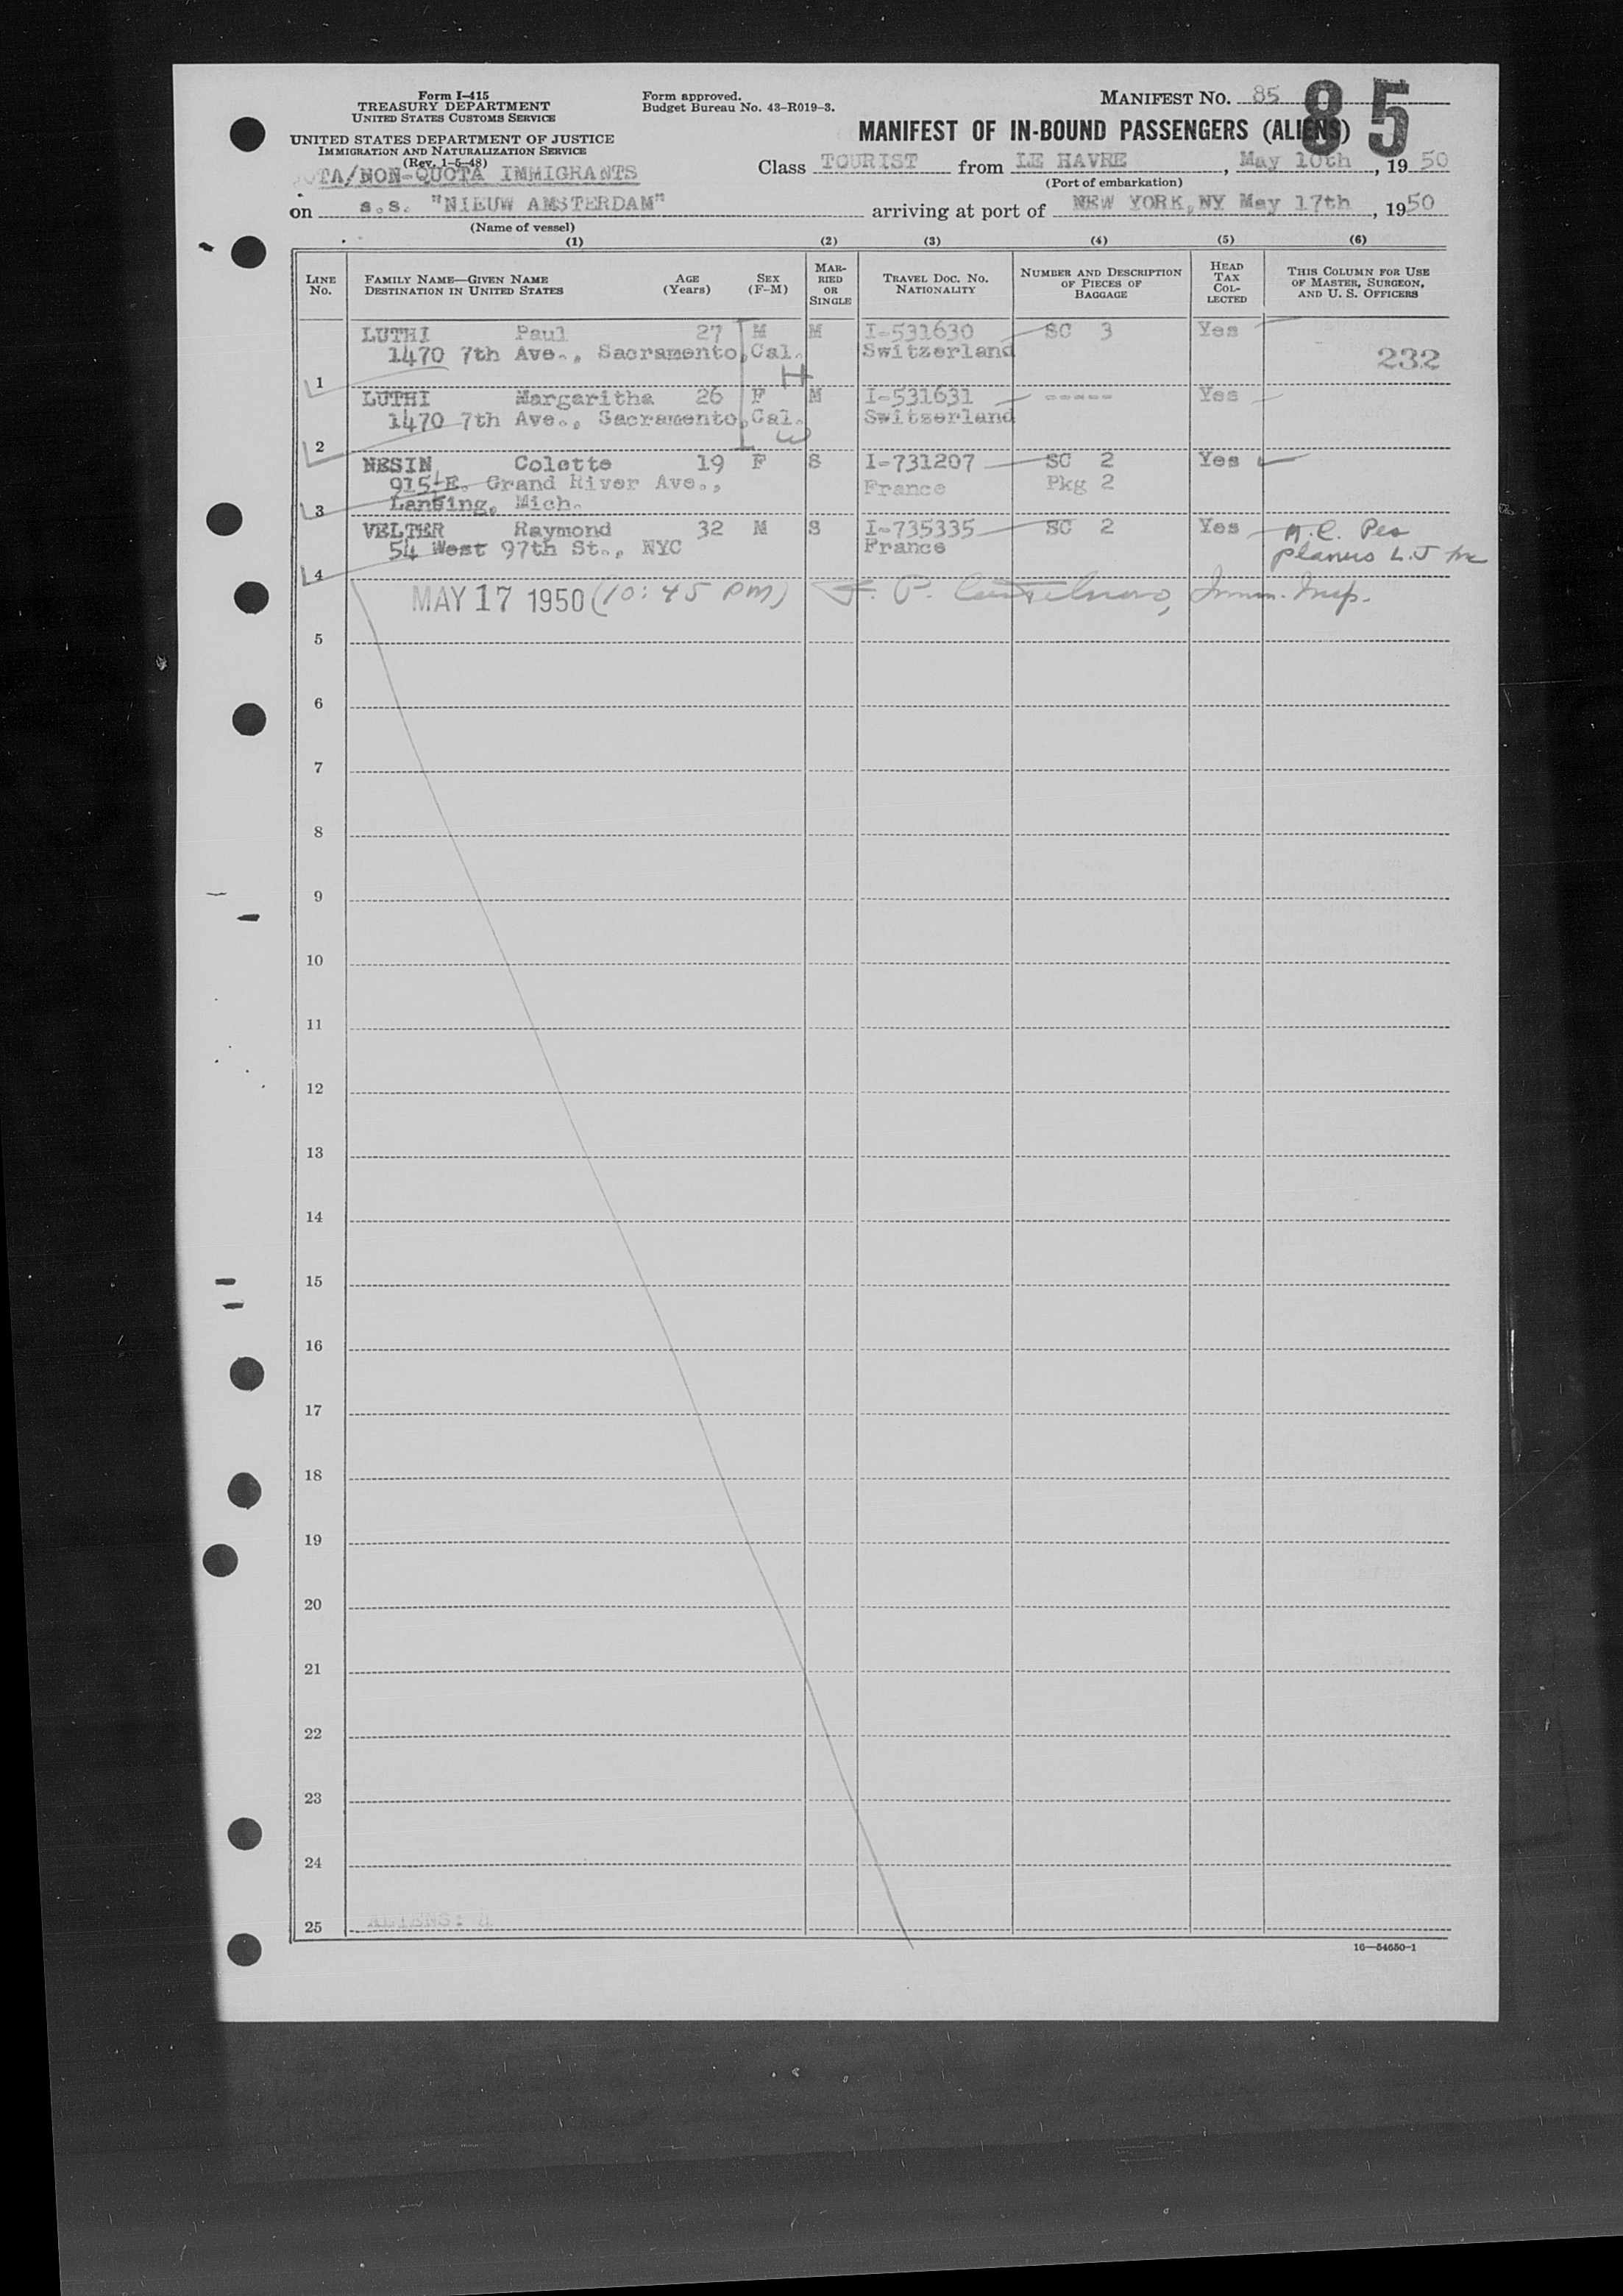 Form I-415
TREASURY DEPARTMENT
UNITED STATES CUSTOMS SERVICE
UNITED STATES DEPARTMENT OF JUSTICE
IMMIGRATION AND NATURALIZATION SERVICE
(Rev. 1-5-48)
Form approved.
Budget Bureau No. 43-R019-3.
MANIFEST NO. 85
85
MANIFEST OF IN-BOUND PASSENGERS (ALIENS)
TA/NON-QUOTA IMMIGRANTS
Class TOURIST from LE HAVRE, May 10th, 1950
(Port of embarkation)
on s.s. "NIEUW AMSTERDAM" arriving at port of NEW YORK, NY May 17th, 1950
(Name of vessel)
(1) (2) (3) (4) (5) (6)
LINE No.
FAMILY NAME—GIVEN NAME
DESTINATION IN UNITED STATES
AGE (Years)
SEX (F-M)
MARRIED OR SINGLE
TRAVEL DOC. NO. NATIONALITY
NUMBER AND DESCRIPTION OF PIECES OF BAGGAGE
HEAD TAX COLLECTED
THIS COLUMN FOR USE OF MASTER, SURGEON, AND U. S. OFFICERS
LUTHI Paul 27 M M I-531630 SC 3 Yes
1470 7th Ave., Sacramento, Cal. Switzerland 232
1 H
LUTHI Margaritha 26 F M I-531631 ----- Yes
1470 7th Ave., Sacramento, Cal. Switzerland
2 W
NESIN Colette 19 F S I-731207 SC 2 Yes
915 E. Grand River Ave., France Pkg 2
3 Lansing, Mich.
VELTER Raymond 32 M S I-735335 SC 2 Yes A.C. Pes
54 West 97th St., NYC France planus L.J
4
MAY 17 1950 (10:45 PM) Immn. Insp.
5
6
7
8
9
10
11
12
13
14
15
16
17
18
19
20
21
22
23
24
25 ALIENS: 4
16—54650-1